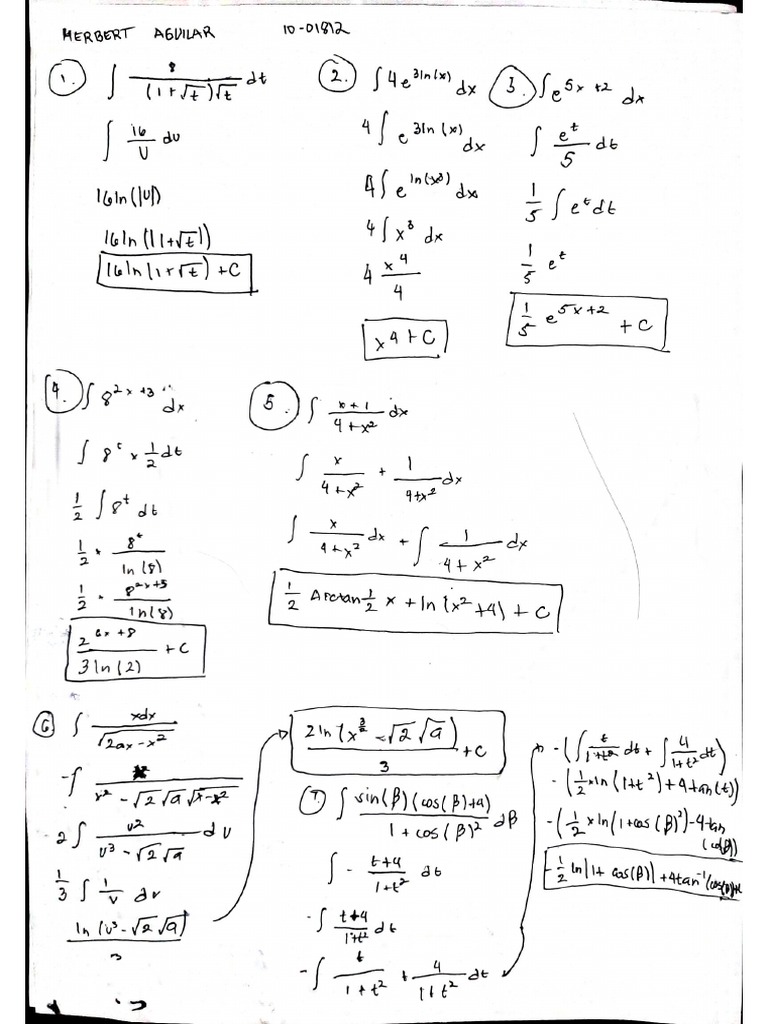 HERBERT AGUILAR 10-01812
1. ∫ 8/((1+√t)√t) dt
∫ 16/U du
16 ln(|U|)
16 ln(|1+√t|)
16 ln(1+√t) + C
2. ∫ 4e^(3ln(x)) dx
4 ∫ e^(3ln(x)) dx
4 ∫ e^(ln(x³)) dx
4 ∫ x³ dx
4 x⁴/4
x⁴ + C
3. ∫ e^(5x+2) dx
∫ e^t/5 dt
1/5 ∫ e^t dt
1/5 e^t
1/5 e^(5x+2) + C
4. ∫ 8^(2x+3) dx
∫ 8^t × 1/2 dt
1/2 ∫ 8^t dt
1/2 * 8^t/ln(8)
1/2 * 8^(2x+3)/ln(8)
2^(6x+8)/(3 ln(2)) + C
5. ∫ (x+1)/(4+x²) dx
∫ x/(4+x²) + 1/(4+x²) dx
∫ x/(4+x²) dx + ∫ 1/(4+x²) dx
1/2 Arctan 1/2 x + ln(x²+4) + C
6 ∫ xdx/√(2ax-x²)
2 ∫ v²/(v³-√2√a) dv
1/3 ∫ 1/v dv
ln(v³-√2√a)/3
2 ln(x^(3/2) - √2 √a)/3 + C
7. ∫ sin(β)(cos(β)+4)/(1+cos(β)²) dβ
∫ - (t+4)/(1+t²) dt
-∫ (t+4)/(1+t²) dt
-∫ t/(1+t²) + 4/(1+t²) dt
-(∫ t/(1+t²) dt + ∫ 4/(1+t²) dt)
-(1/2 × ln(1+t²) + 4 tan(t))
-(1/2 × ln(1+cos(β)²) - 4 tan (cos(β))
-1/2 ln|1+cos(β)| + 4tan⁻¹(cos(β)+c